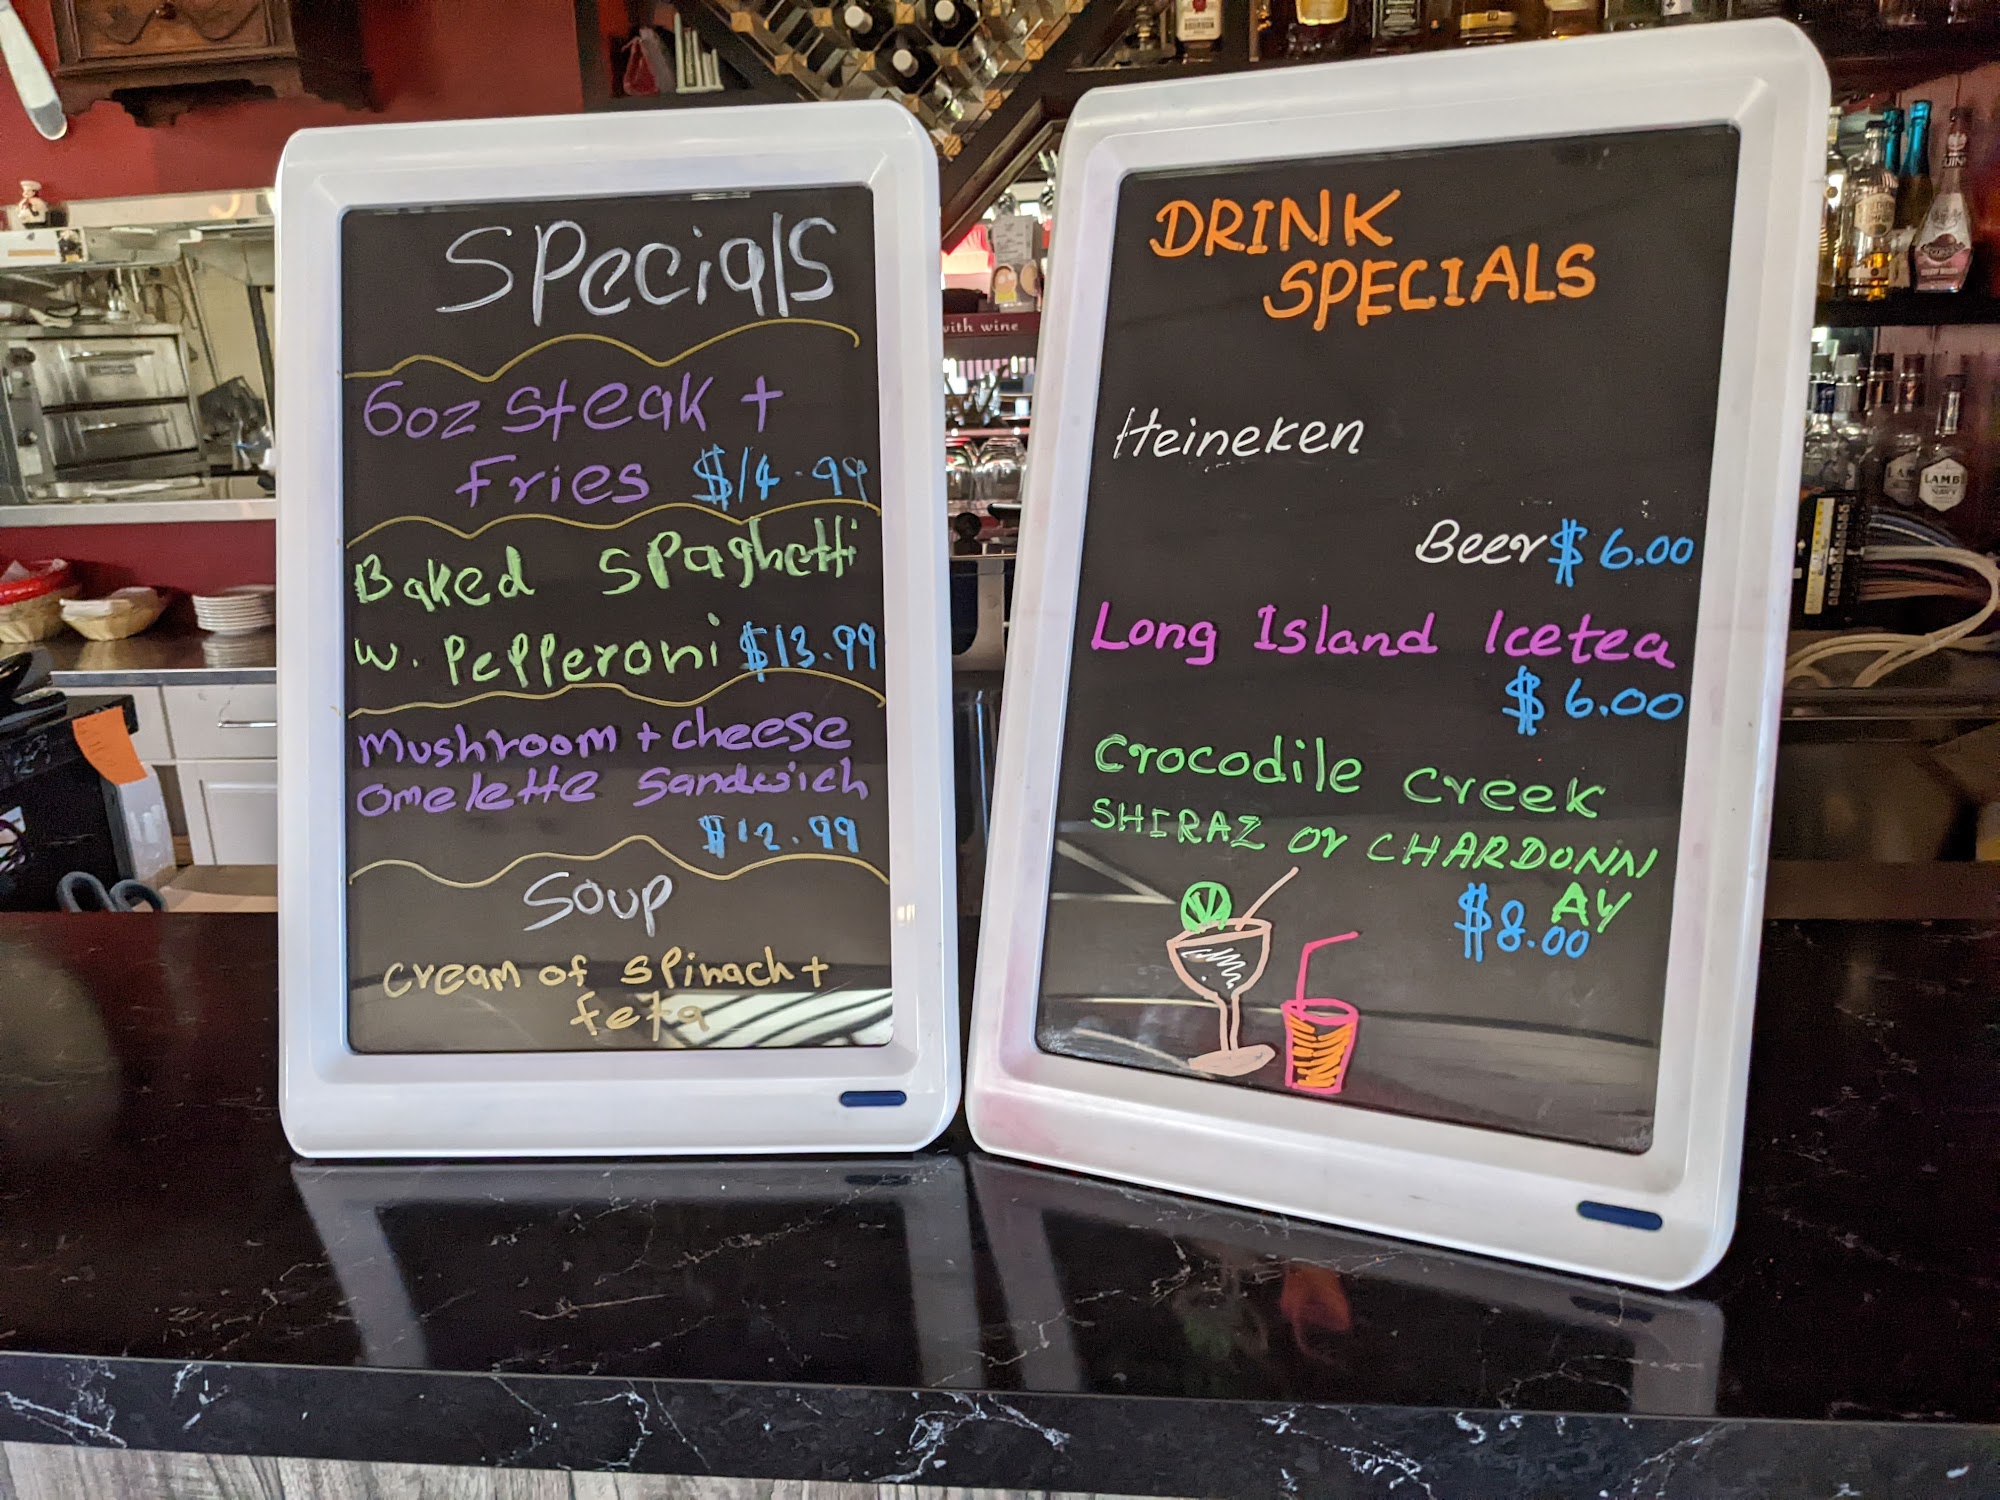 Specials
6oz Steak +
Fries $14.99
Baked Spaghetti
w. Pepperoni $13.99
Mushroom + cheese
omelette sandwich
$12.99
Soup
cream of spinach +
feta
DRINK
SPECIALS
Heineken
Beer $6.00
Long Island Icetea
$6.00
Crocodile Creek
SHIRAZ or CHARDONN
AY
$8.00
with wine
LAMB